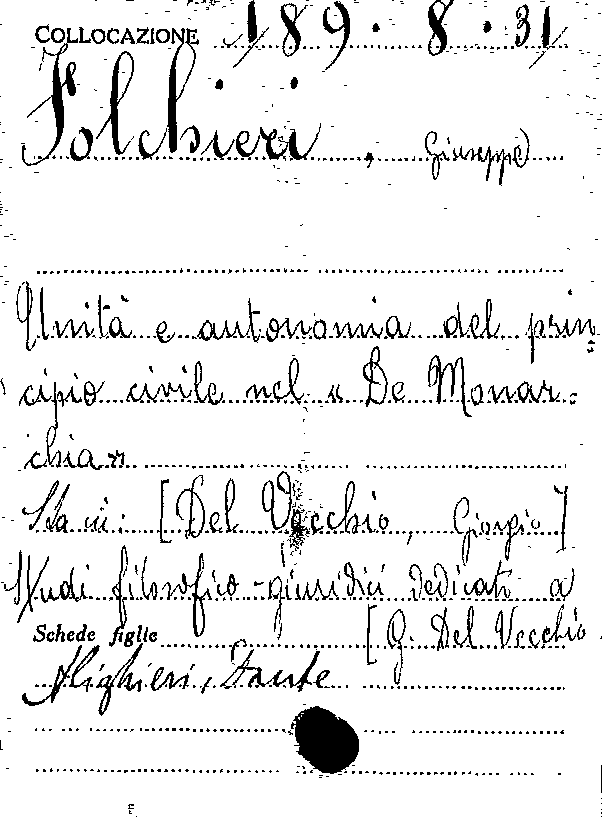 COLLOCAZIONE 189.8.31
Folchieri, Giuseppe
Unità e autonomia del prin=
cipio civile nel « De Monar=
chia»
Sta in: [Del Vecchio, Giorgio]
Studi filosofico-giuridici dedicati a
Schede figlie [G. Del Vecchio
Alighieri, Dante